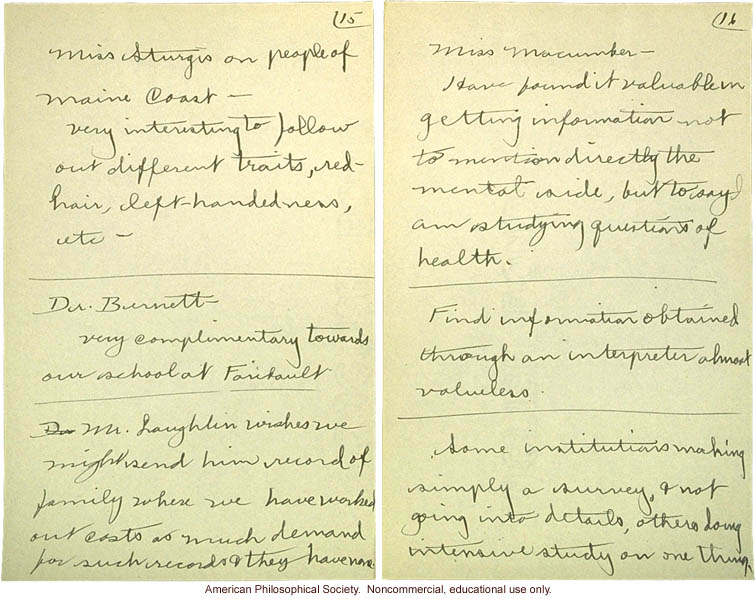 15
Miss Sturgis on people of
Maine Coast —
very interesting to follow
out different traits, red-
hair, left-handedness,
etc —
Dr. Burnett —
very complimentary towards
our school at Faribault
Dr Mr. Laughlin wishes we
might send him record of
family where we have worked
out costs as much demand
for such records & they have none.
16
Miss Macumber —
Have found it valuable in
getting information not
to mention directly the
mental side, but to say I
am studying questions of
health.
Find information obtained
through an interpreter almost
valueless.
Some institutions making
simply a survey, & not
going into details, others doing
intensive study on one thing.
American Philosophical Society. Noncommercial, educational use only.